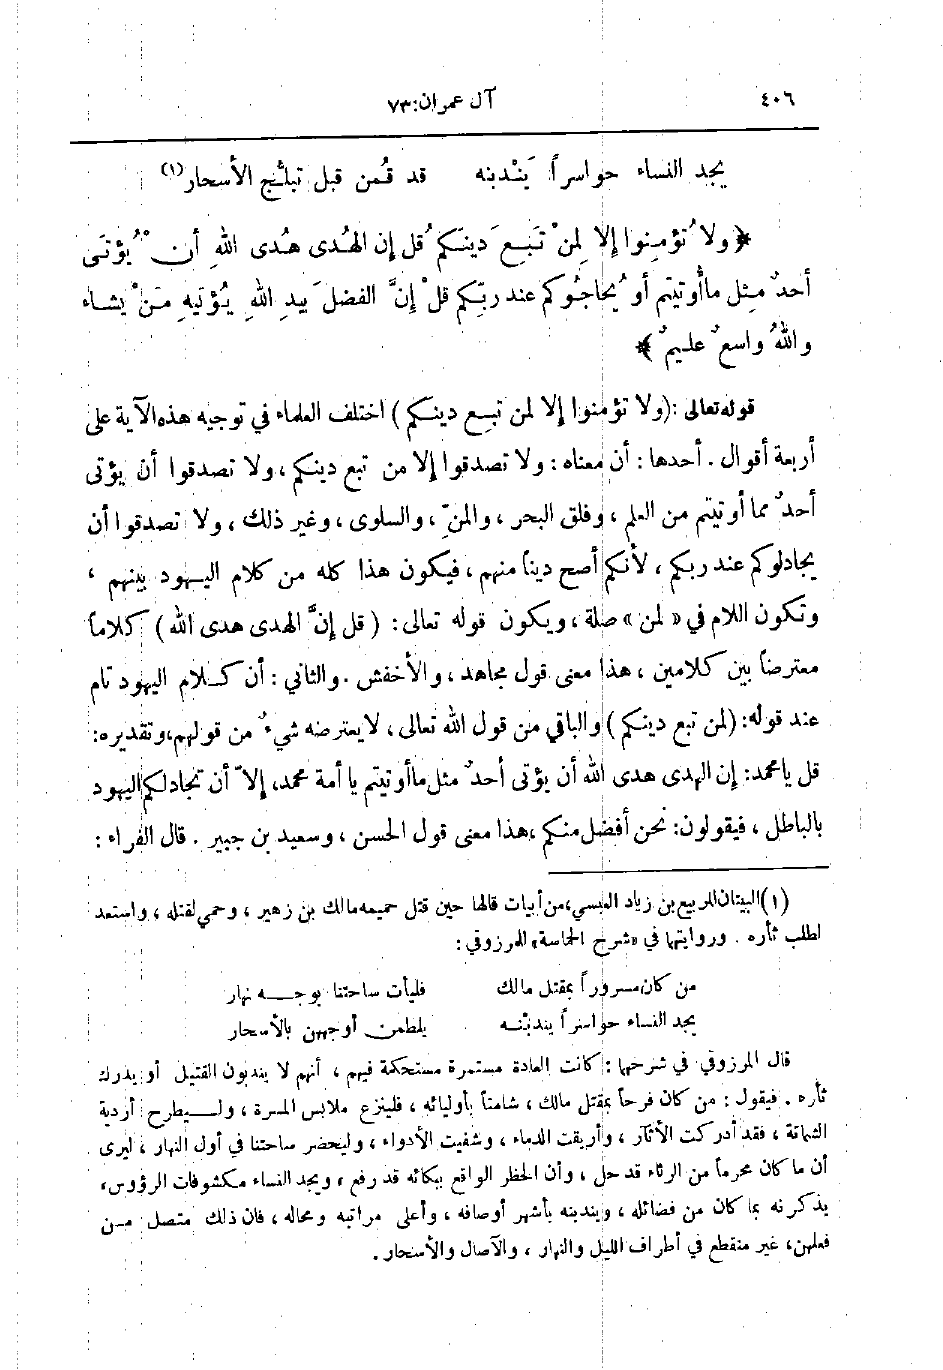 ٤٠٦ آل عمران: ٧٣
يجد النساء حواسراً يَنْدبنه قد قُمن قبل تبلُّج الأسحار (١)
﴿ ولا تُؤمِنوا إلا لِمنْ تَبِعَ دينَكم قُل إن الهُدى هُدى اللهِ أن يُؤتَى
أحدٌ مِثل ما أُوتيتم أو يُحاجُوكم عند ربِّكم قلْ إنَّ الفضلَ بيدِ اللهِ يُؤتيهِ مَنْ يشاء
واللهُ واسعٌ عليمٌ ﴾
قوله تعالى : (ولا تؤمنوا إلا لمن تبع دينكم) اختلف العلماء في توجيه هذه الآية على
أربعة أقوال . أحدها : أن معناه : ولا تصدقوا إلا من تبع دينكم ، ولا تصدقوا أن يؤتى
أحدٌ مما أوتيتم من العلم ، وفلق البحر ، والمنّ ، والسلوى ، وغير ذلك ، ولا تصدقوا أن
يجادلوكم عند ربكم ، لأنكم أصح ديناً منهم ، فيكون هذا كله من كلام اليهود بينهم ،
وتكون اللام في « لمن » صلة ، ويكون قوله تعالى : ( قل إنَّ الهدى هدى الله ) كلاماً
معترضاً بين كلامين ، هذا معنى قول مجاهد ، والأخفش . والثاني : أن كلام اليهود تام
عند قوله : (لمن تبع دينكم) والباقي من قول الله تعالى ، لا يعترضه شيءٌ من قولهم، وتقديره:
قل يا محمد: إن الهدى هدى الله أن يؤتى أحدٌ مثل ما أوتيتم يا أمة محمد، إلاّ أن تجادلكم اليهود
بالباطل ، فيقولون: نحن أفضل منكم ،هذا معنى قول الحسن ، وسعيد بن جبير . قال الفراء :
(١) البيتان للربيع بن زياد العبسي، من أبيات قالها حين قتل حميمه مالك بن زهير ، وحمي لقتله ، واستعد
لطلب ثأره . وروايتها في «شرح الحماسة» للمرزوقي :
من كان مسروراً بمقتل مالك فليأت ساحتنا بوجه نهار
يجد النساء حواسراً يندبنه يلطمن أوجههن بالأسحار
قال المرزوقي في شرحها : كانت العادة مستمرة مستحكمة فيهم ، أنهم لا يندبون القتيل أو يدرك
ثأره . فيقول : من كان فرحاً بمقتل مالك ، شامتاً بأوليائه ، فلينزع ملابس المسرة ، وليطرح أردية
الشماتة ، فقد أدركت الأثآر ، وأريقت الدماء ، وشفيت الأدواء ، وليحضر ساحتنا في أول النهار ، ليرى
أن ما كان محرماً من الرثاء قد حل ، وأن الحظر الواقع ببكائه قد رفع ، ويجد النساء مكشوفات الرؤوس،
يذكرنه بما كان من فضائله ، ويندبنه بأشهر أوصافه ، وأعلى مراتبه ومحاله ، فان ذلك متصل من
فعلهن، غير منقطع في أطراف الليل والنهار ، والآصال والأسحار .